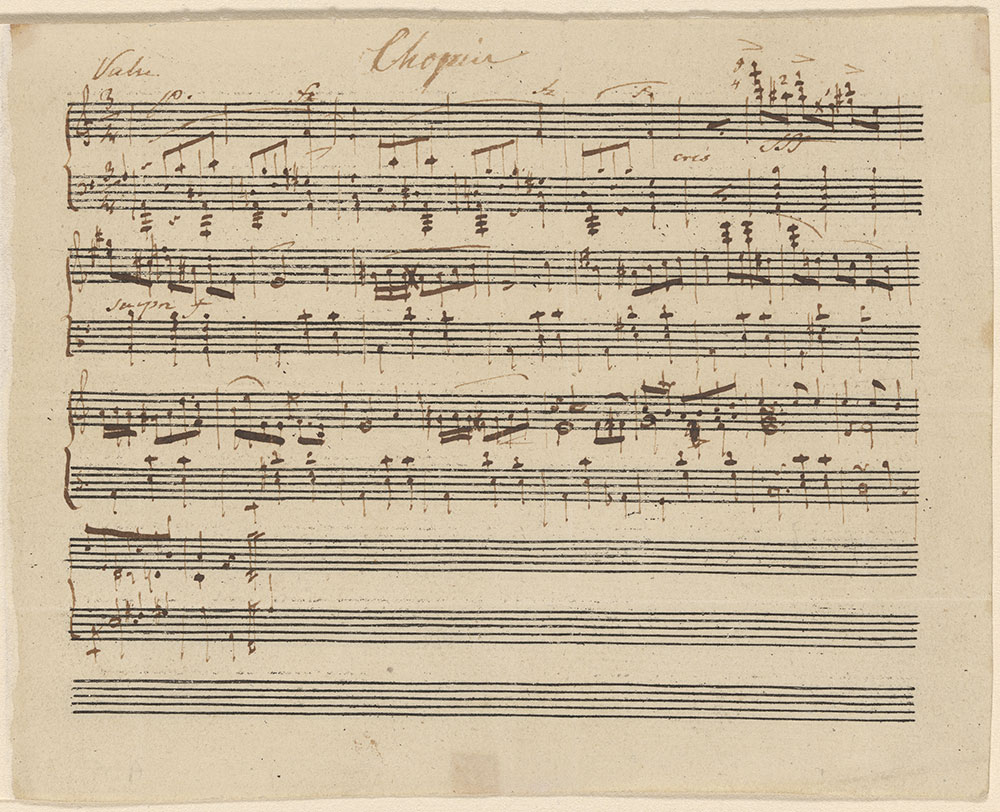 Chopin
Valse
3
4
3
4
cres
fff
sempre f